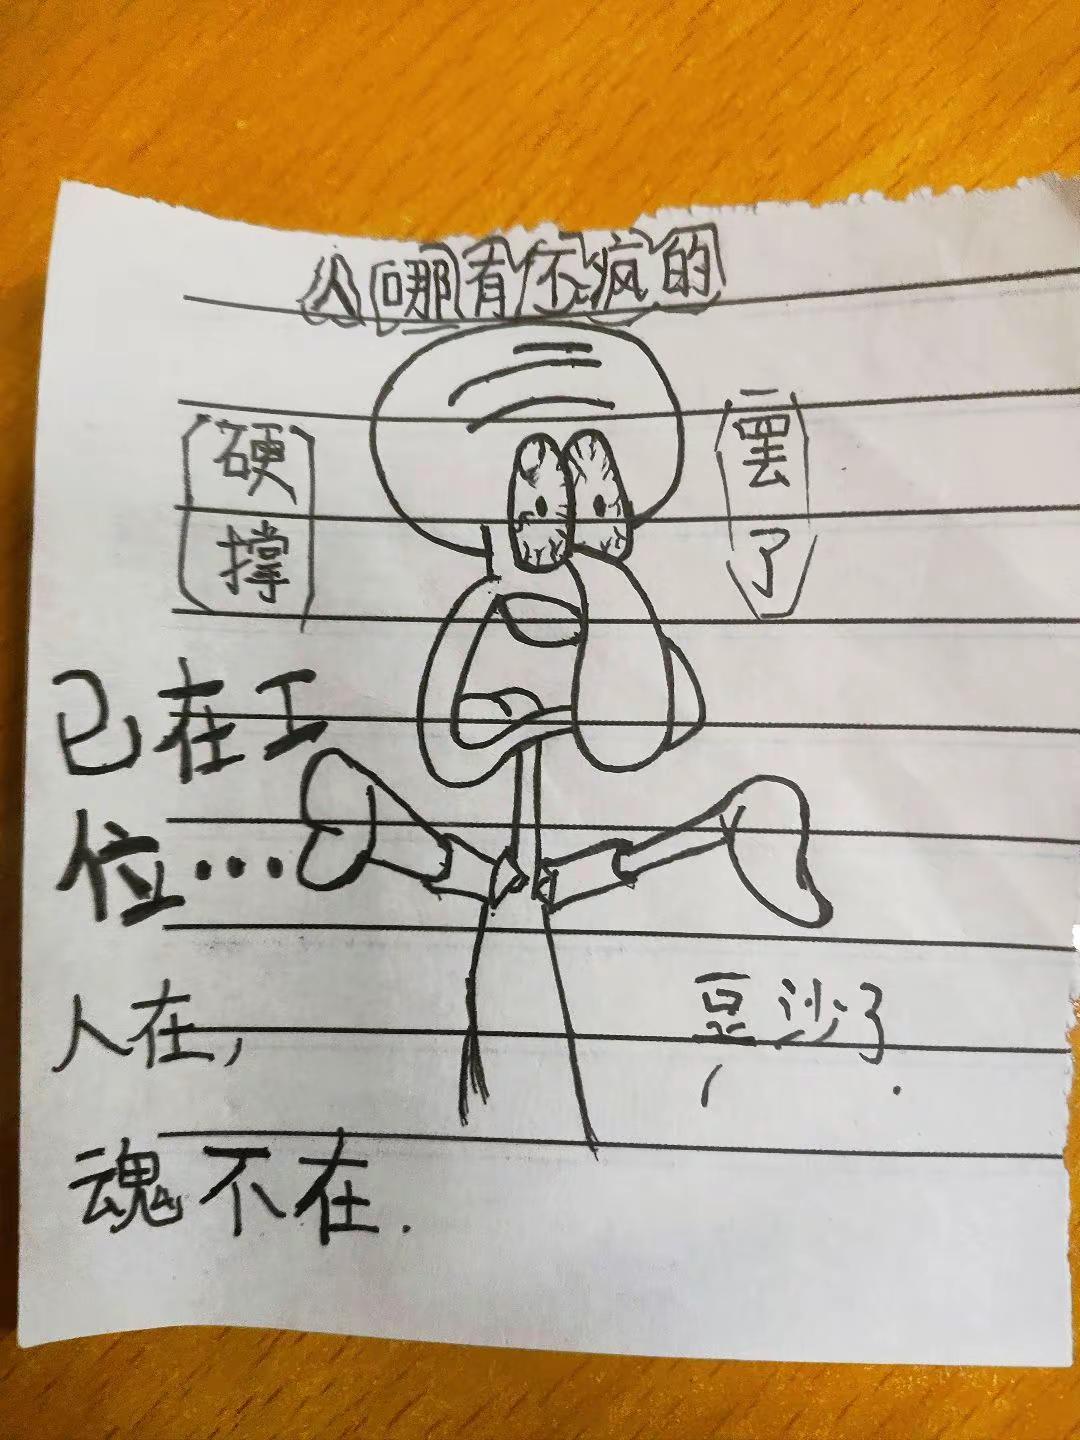 人哪有不疯的
硬撑
罢了
已在工
位...
人在,
魂不在.
豆沙了